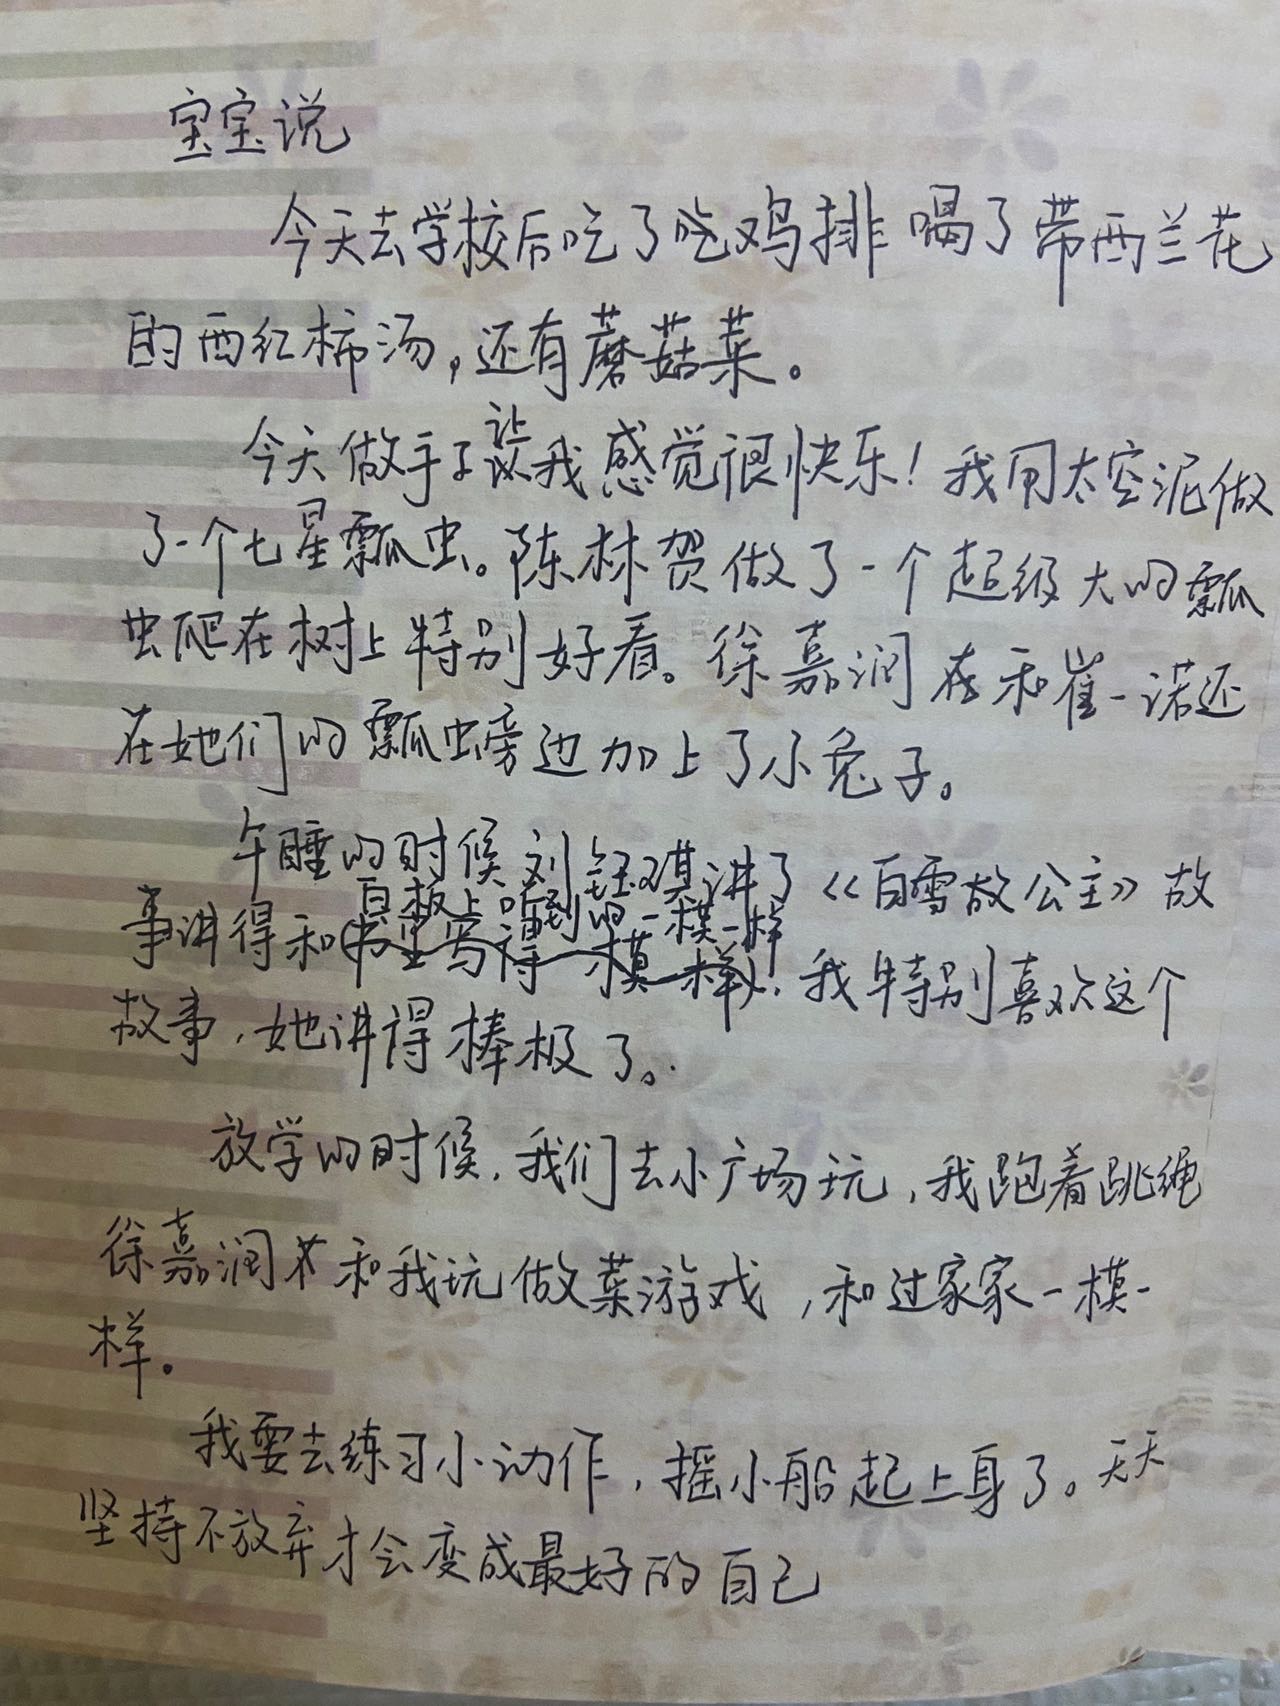 宝宝说
今天去学校后吃了吃鸡排 喝了带西兰花
的西红柿汤，还有蘑菇菜。
今天做手工让我感觉很快乐！我用太空泥做
了一个七星瓢虫。陈林贺做了一个超级大的瓢
虫爬在树上特别好看。徐嘉润在和崔一诺还
在她们的瓢虫螃边加上了小兔子。
午睡的时候刘钰琪讲了《白雪故公主》故
白板上喵到的一模一样
事讲得和书里写得一模一样，我特别喜欢这个
故事，她讲得棒极了。
放学的时候，我们去小广场玩，我跑着跳绳
徐嘉润和我玩做菜游戏，和过家家一模一
样。
我要去练习小动作，摇小船起上身了。天天
坚持不放弃才会变成最好的自己